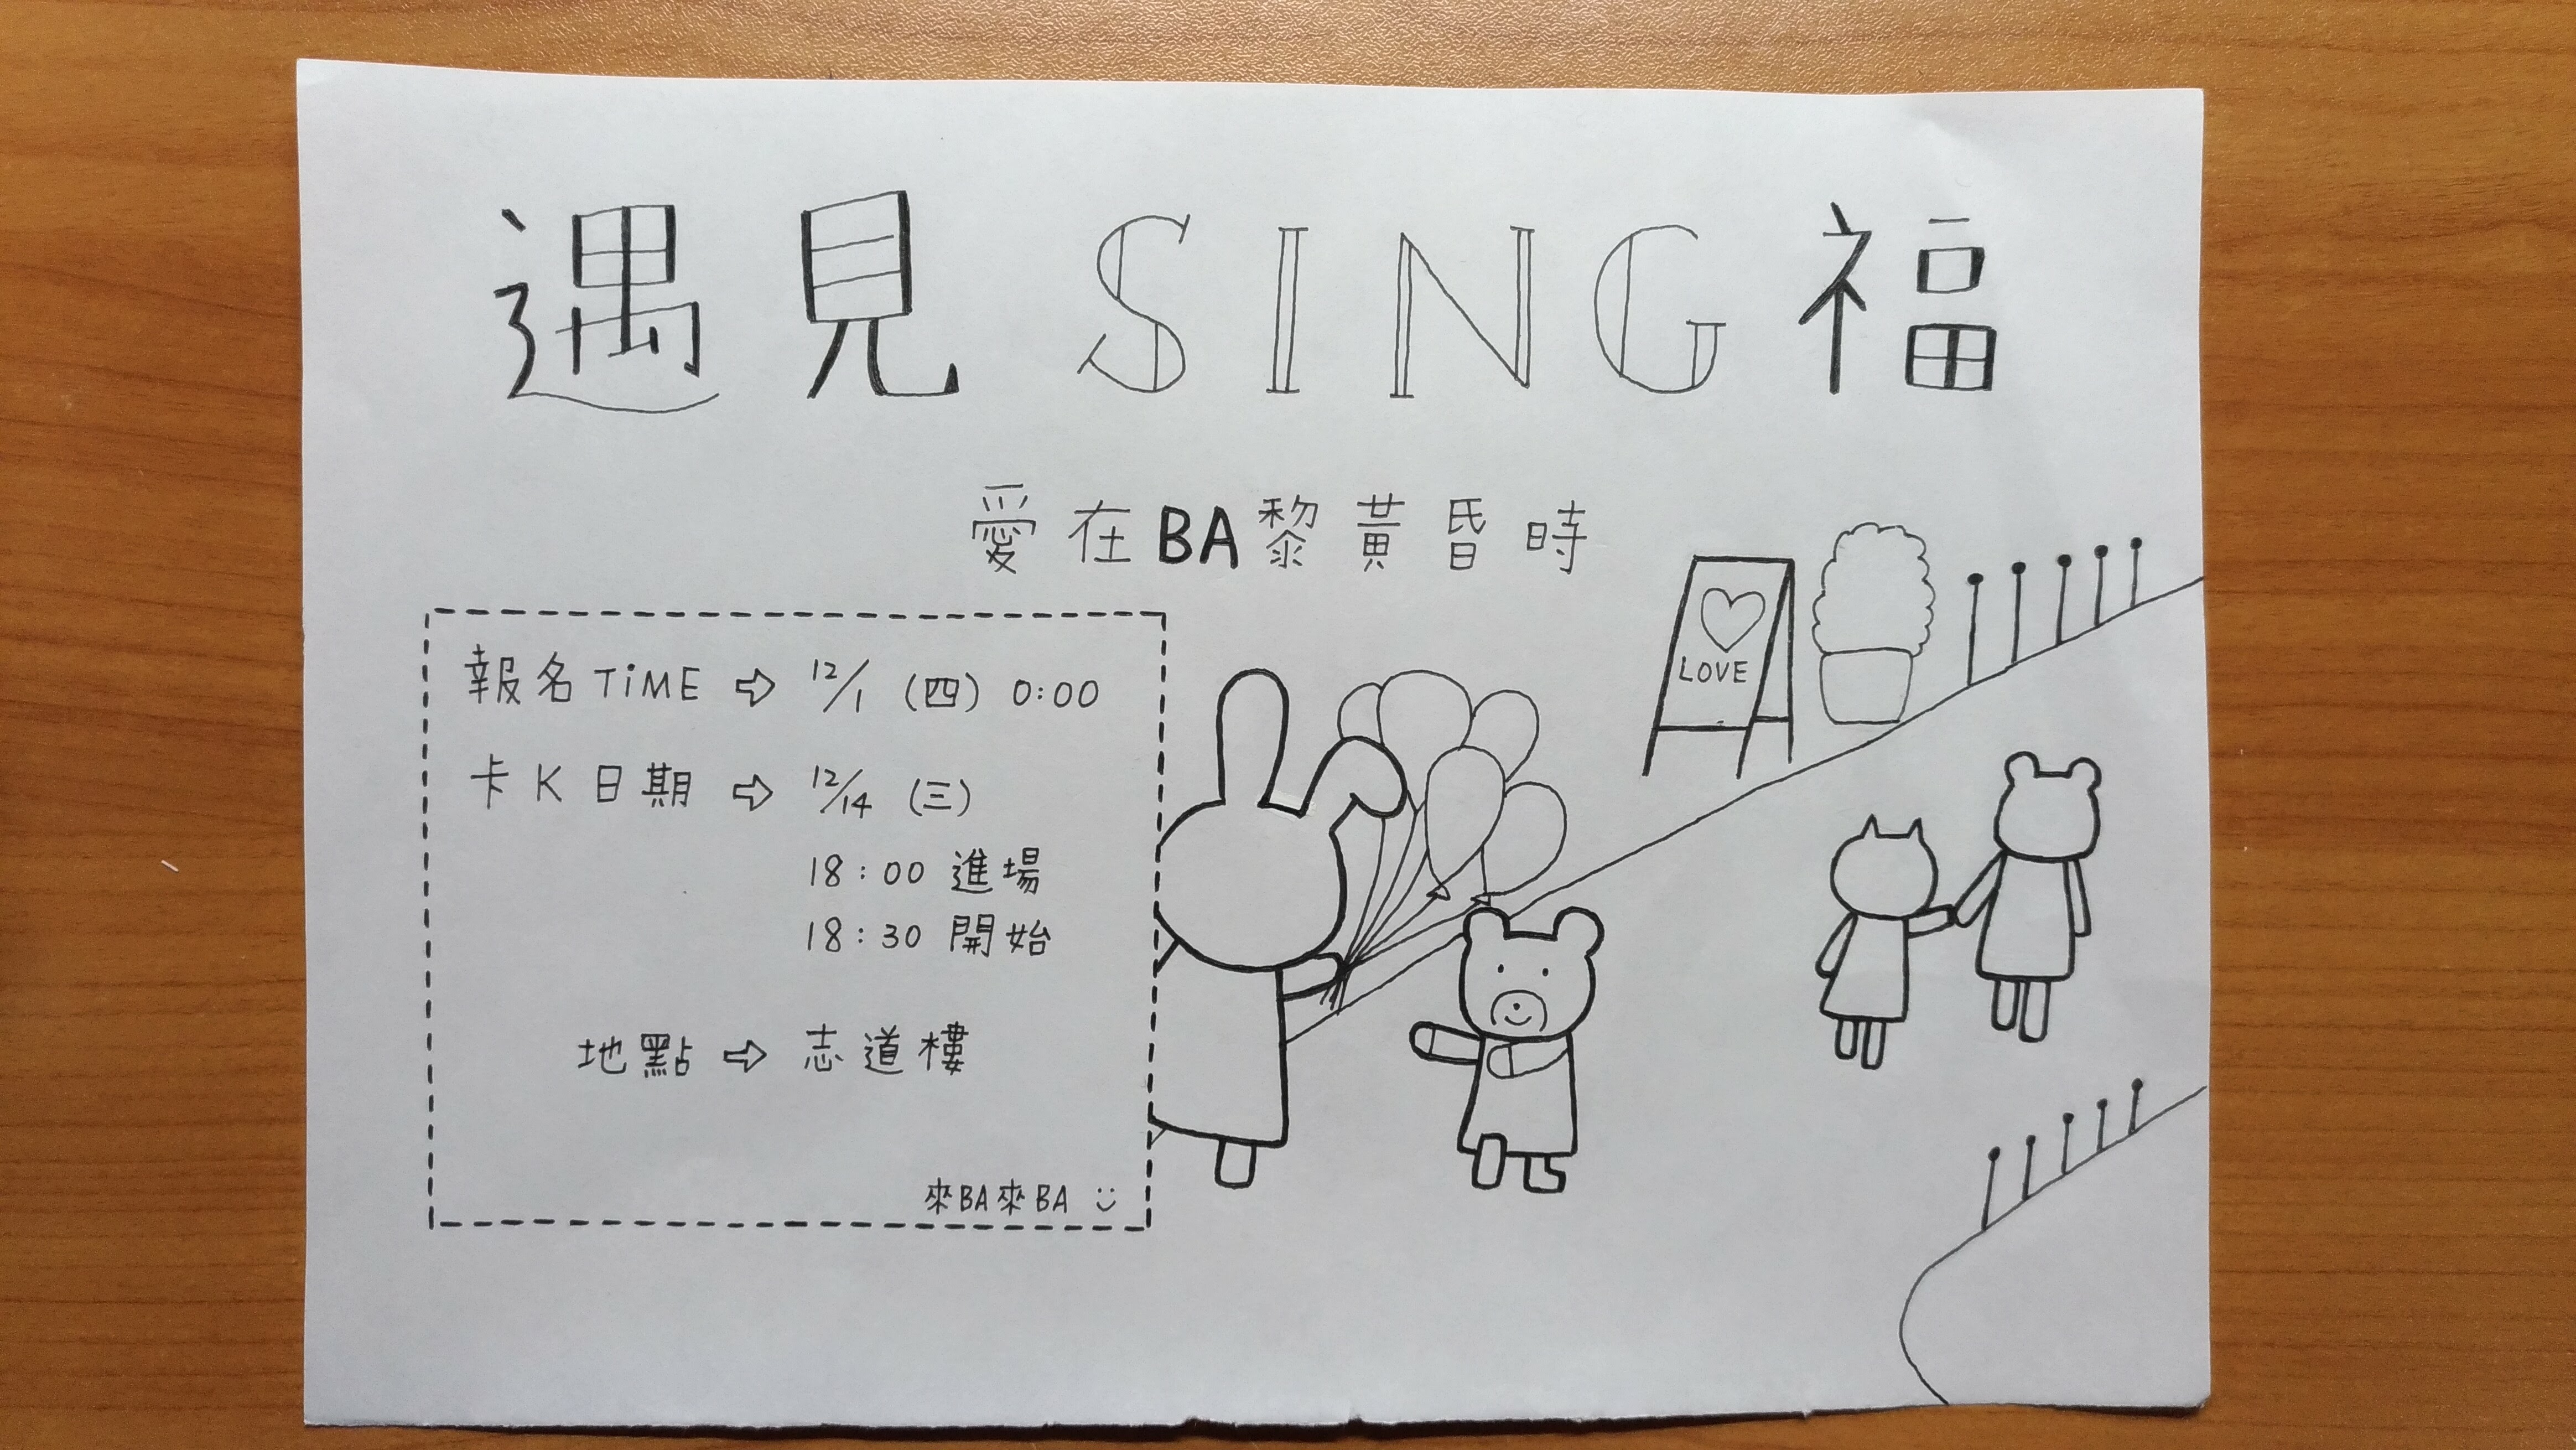 遇見SING福
愛在BA黎黃昏時
LOVE
報名TiME ⇨ 12/1 (四) 0:00
卡K日期 ⇨ 12/14 (三)
18:00 進場
18:30 開始
地點 ⇨ 志道樓
來BA來BA :)